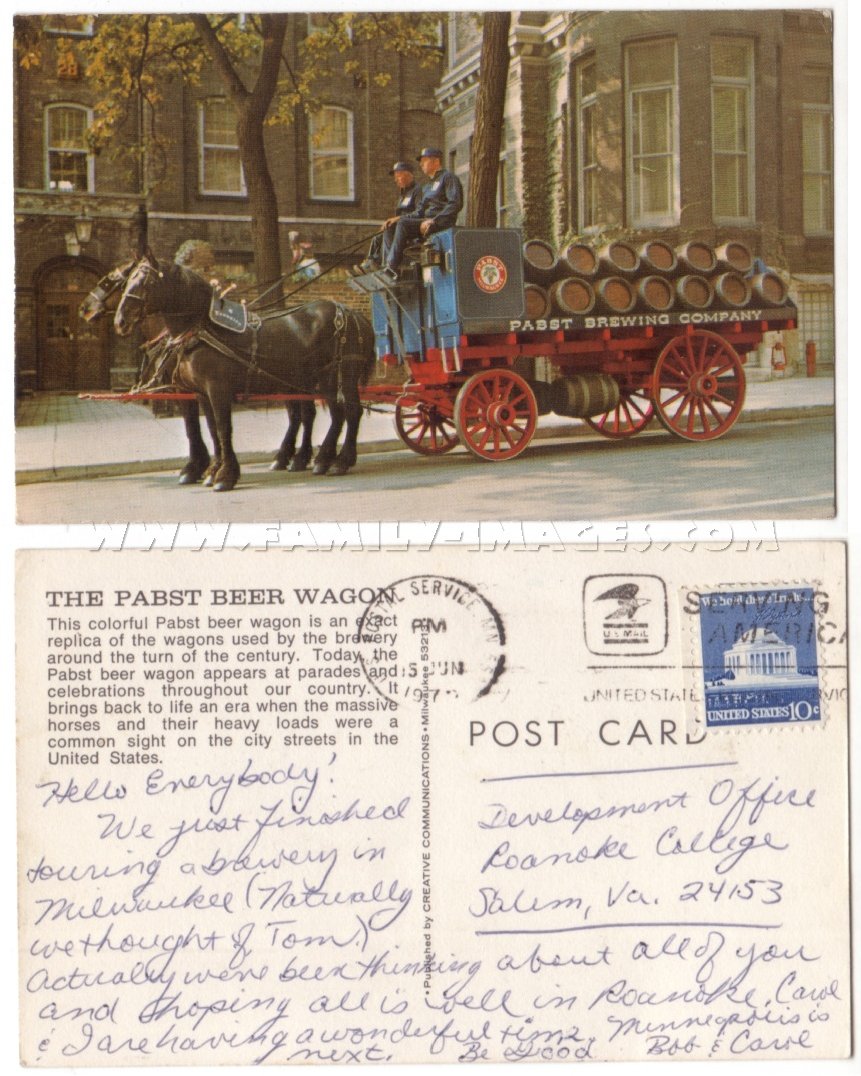 PABST
PABST BREWING COMPANY
WWW.FAMILY-IMAGES.COM
THE PABST BEER WAGON
This colorful Pabst beer wagon is an exact
replica of the wagons used by the brewery
around the turn of the century. Today, the
Pabst beer wagon appears at parades and
celebrations throughout our country. It
brings back to life an era when the massive
horses and their heavy loads were a
common sight on the city streets in the
United States.
Hello Everybody!
We just finished
touring a brewery in
Milwaukee (Naturally
we thought of Tom.)
Actually we've been thinking about all of you
and hoping all is well in Roanoke. Carol
& I are having a wonderful time. Minneapolis is
next. Be Good Bob & Carol
Published by CREATIVE COMMUNICATIONS • Milwaukee
POSTAL SERVICE
PM
15 JUN
U.S. MAIL
SERVING
AMERICA
UNITED STATES
UNITED STATES 10c
POST CARD
Development Office
Roanoke College
Salem, Va. 24153